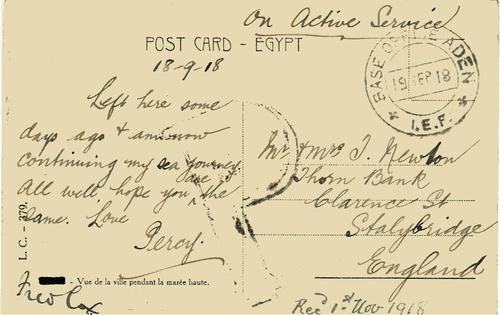 On Active Service
POST CARD - EGYPT
18-9-18
BASE OFFICE ADEN
19 SEP 18
* I.E.F. *
Left here some
days ago & am now
continuing my sea journey.
are
All well hope you ^ the
same. Love
Percy.
Mr & Mrs J. Newton
Thorn Bank
Clarence St
Stalybridge
England
L. C. - 379.
- Vue de la ville pendant la marée haute.
Recd 1st Nov 1918